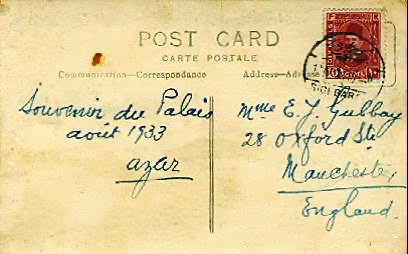 POST CARD
CARTE POSTALE
Communication—Correspondance
Address—Adresse
Souvenir du Palais
août 1933
azar
Mme E J. Gubbay
28 Oxford Ste
Manchester,
England.
10
SIDI GABER